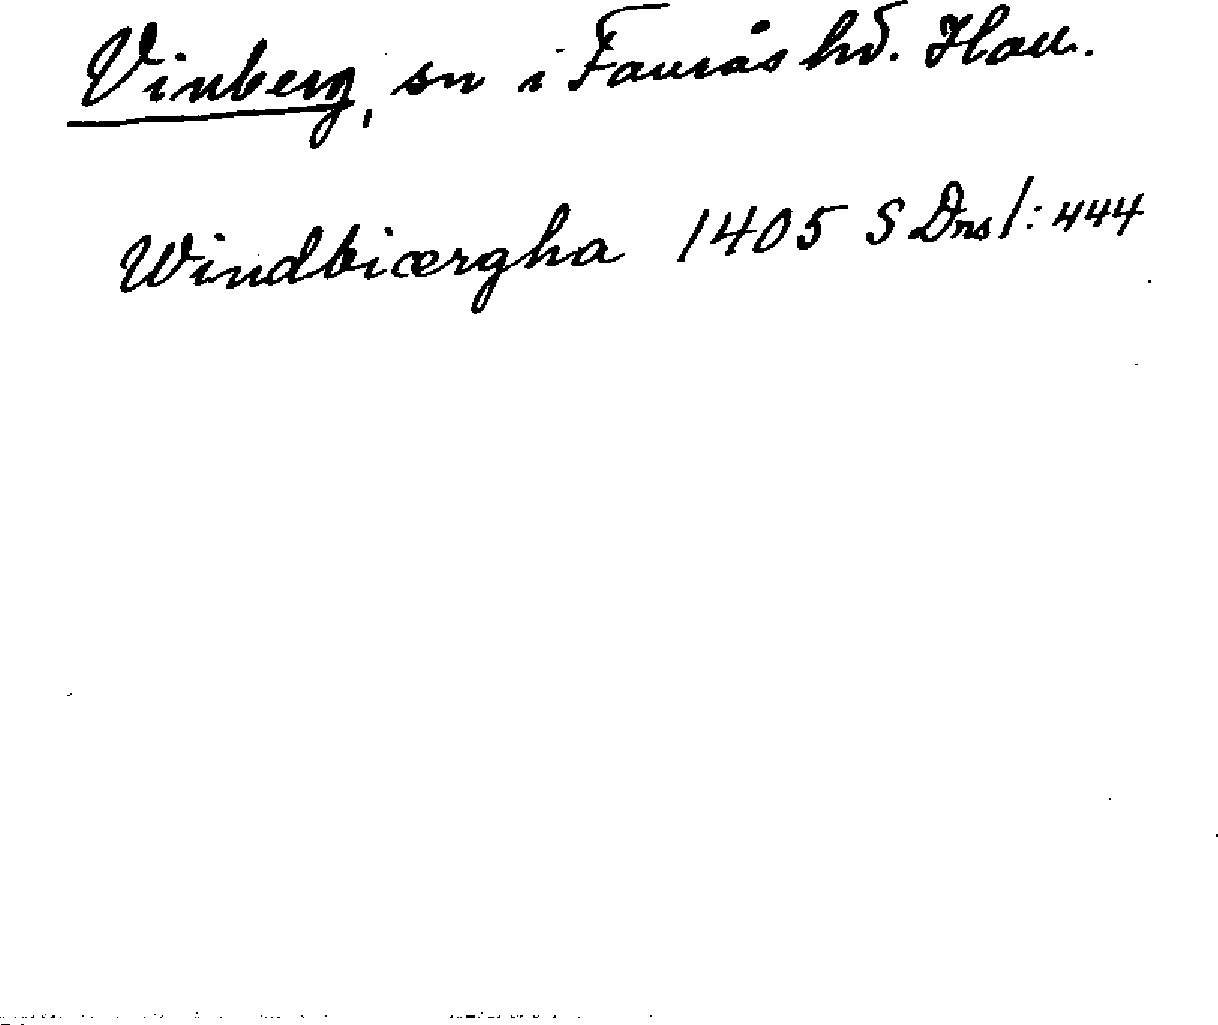 Vinberg, sn i Faurås hd. Hall.
Windbiærgha 1405 SDns 1:444